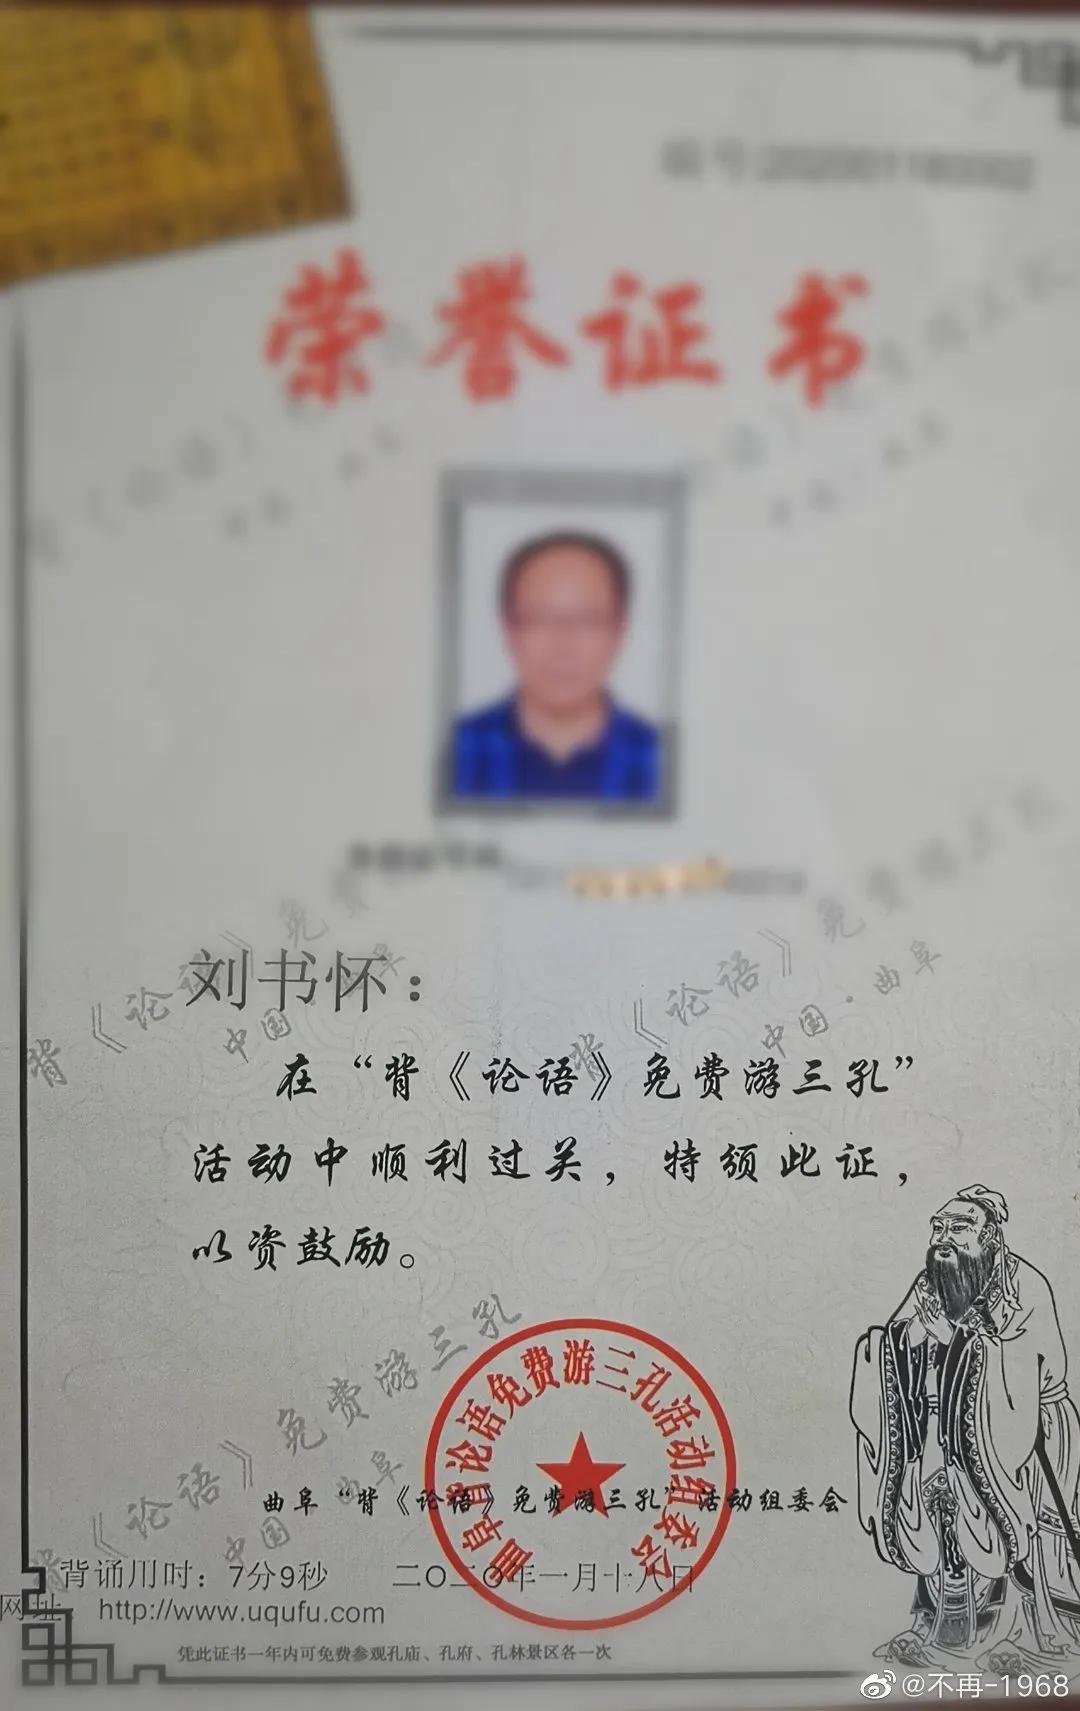 编号:202001180002
荣誉证书
刘书怀：
在“背《论语》免费游三孔”
活动中顺利过关，特颁此证，
以资鼓励。
曲阜“背《论语》免费游三孔”活动组委会
曲阜背论语免费游三孔活动组委会
背诵用时：7分9秒 二〇二〇年一月十八日
网址：http://www.uqufu.com
凭此证书一年内可免费参观孔庙、孔府、孔林景区各一次
背《论语》免费游三孔
中国·曲阜
背《论语》免费游三孔
中国·曲阜
背《论语》免费游三孔
中国·曲阜
@不再-1968